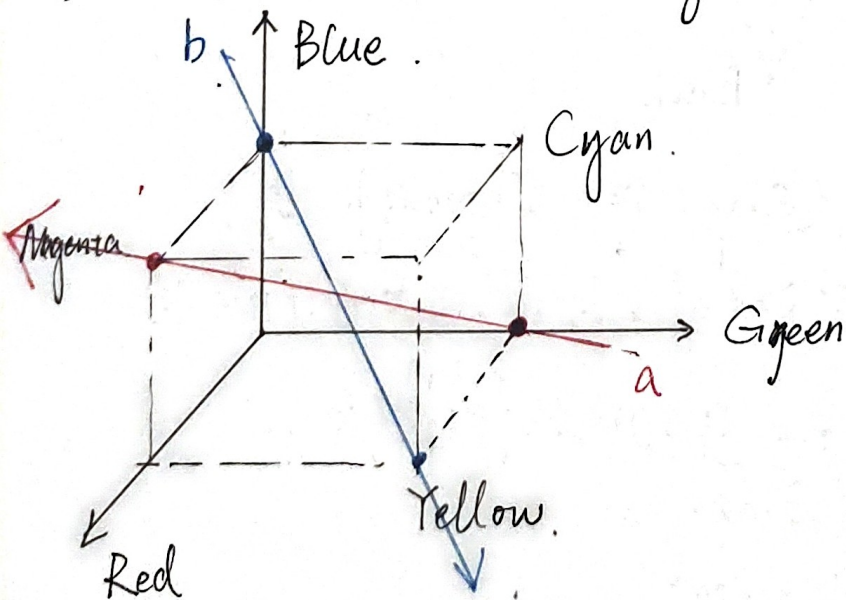 b
Blue .
Cyan .
Magenta
Green
a
Yellow .
Red